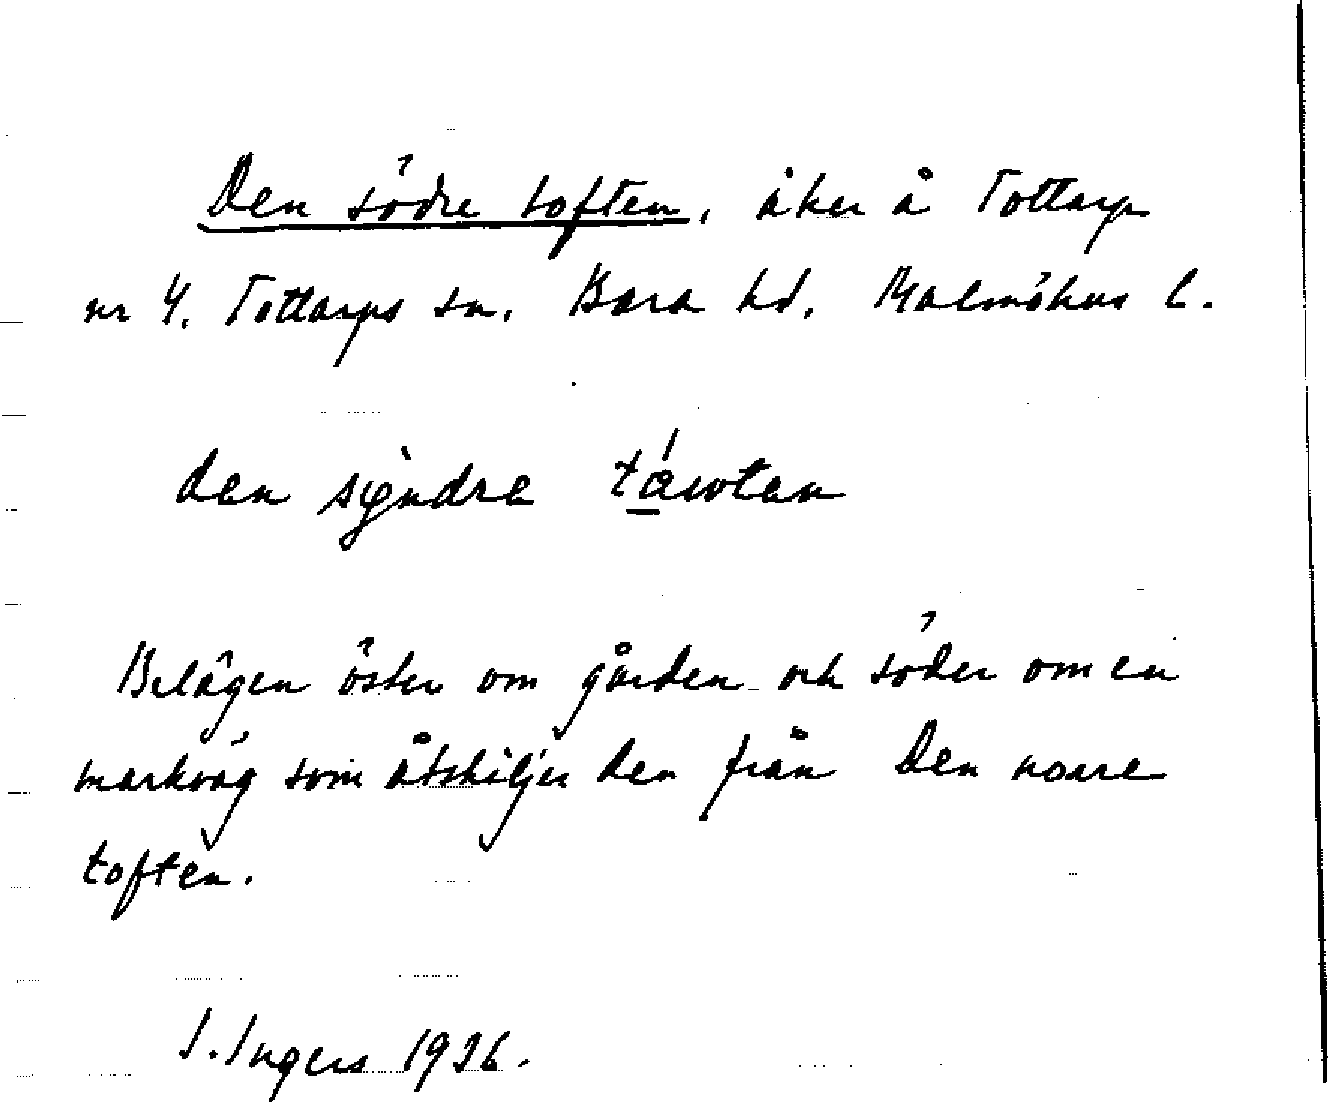 Den södre toften, åker å Tottarp
nr 4. Tottarps sn. Bara hd. Malmöhus l.
den syndre táwten
Belägen öster om gården och söder om en
markväg som åtskiljer den från Den norre
toften.
I. Ingers 1926.